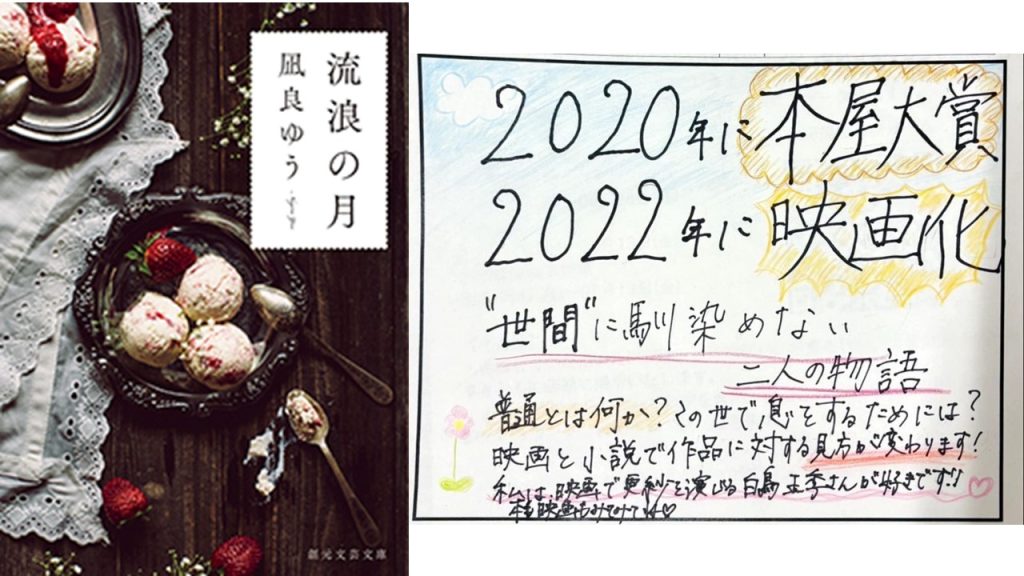 流浪の月
凪良ゆう
創元文芸文庫
2020年に本屋大賞
2022年に映画化
"世間"に馴染めない
二人の物語
普通とは何か?この世で息をするためには?
映画と小説で作品に対する見方が変わります!
私は、映画で更紗を演じる白鳥玉季さんが好きです!
映画もみてみてね♡